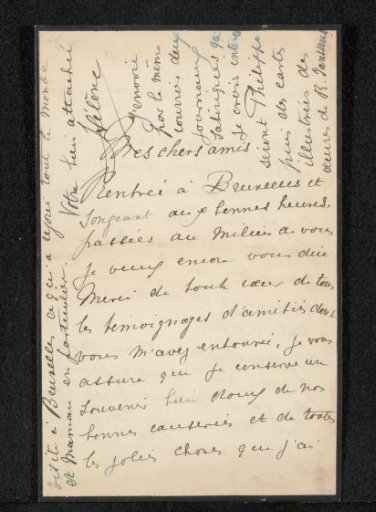 Mes chers amis
Rentrée à Bruxelles et
songeant aux bonnes heures
passées au milieu de vous
je veux encore vous dire
Merci de tout cœur de tous
les témoignages d'amitiés dont
vous m'avez entourée, je vous
assure que je conserve un
souvenir bien doux de nos
bonnes causeries et de toutes
les jolies choses que j'ai
visite à Bruxelles ce qui a réjoui tout le monde
et Maman en particulier.
Votre bien attachée
Hélène
J'envoie
par le même
courrier deux
journaux
satiriques qui
je crois intéres
seront Philippe
puis des cartes
illustrées des
œuvres de B.